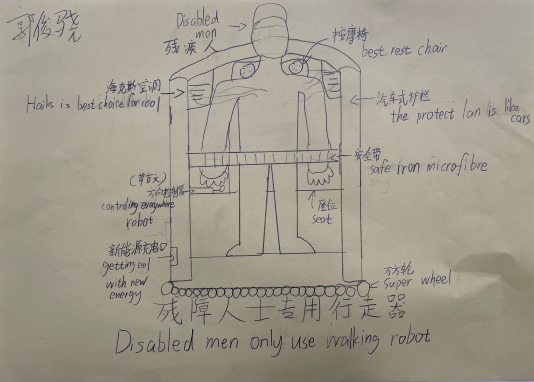 郭俊骁
Disabled
man
残疾人
按摩椅
best rest chair
海克斯空调
Haiks is best choice for cool
汽车式护栏
the protect lan is like
cars
安全带
safe iron microfibre
万向控制器
controling everywhere
robot
座位
seat
新能源充电口
getting eel
with new
energy
万方轮
super wheel
残障人士专用行走器
Disabled men only use walking robot